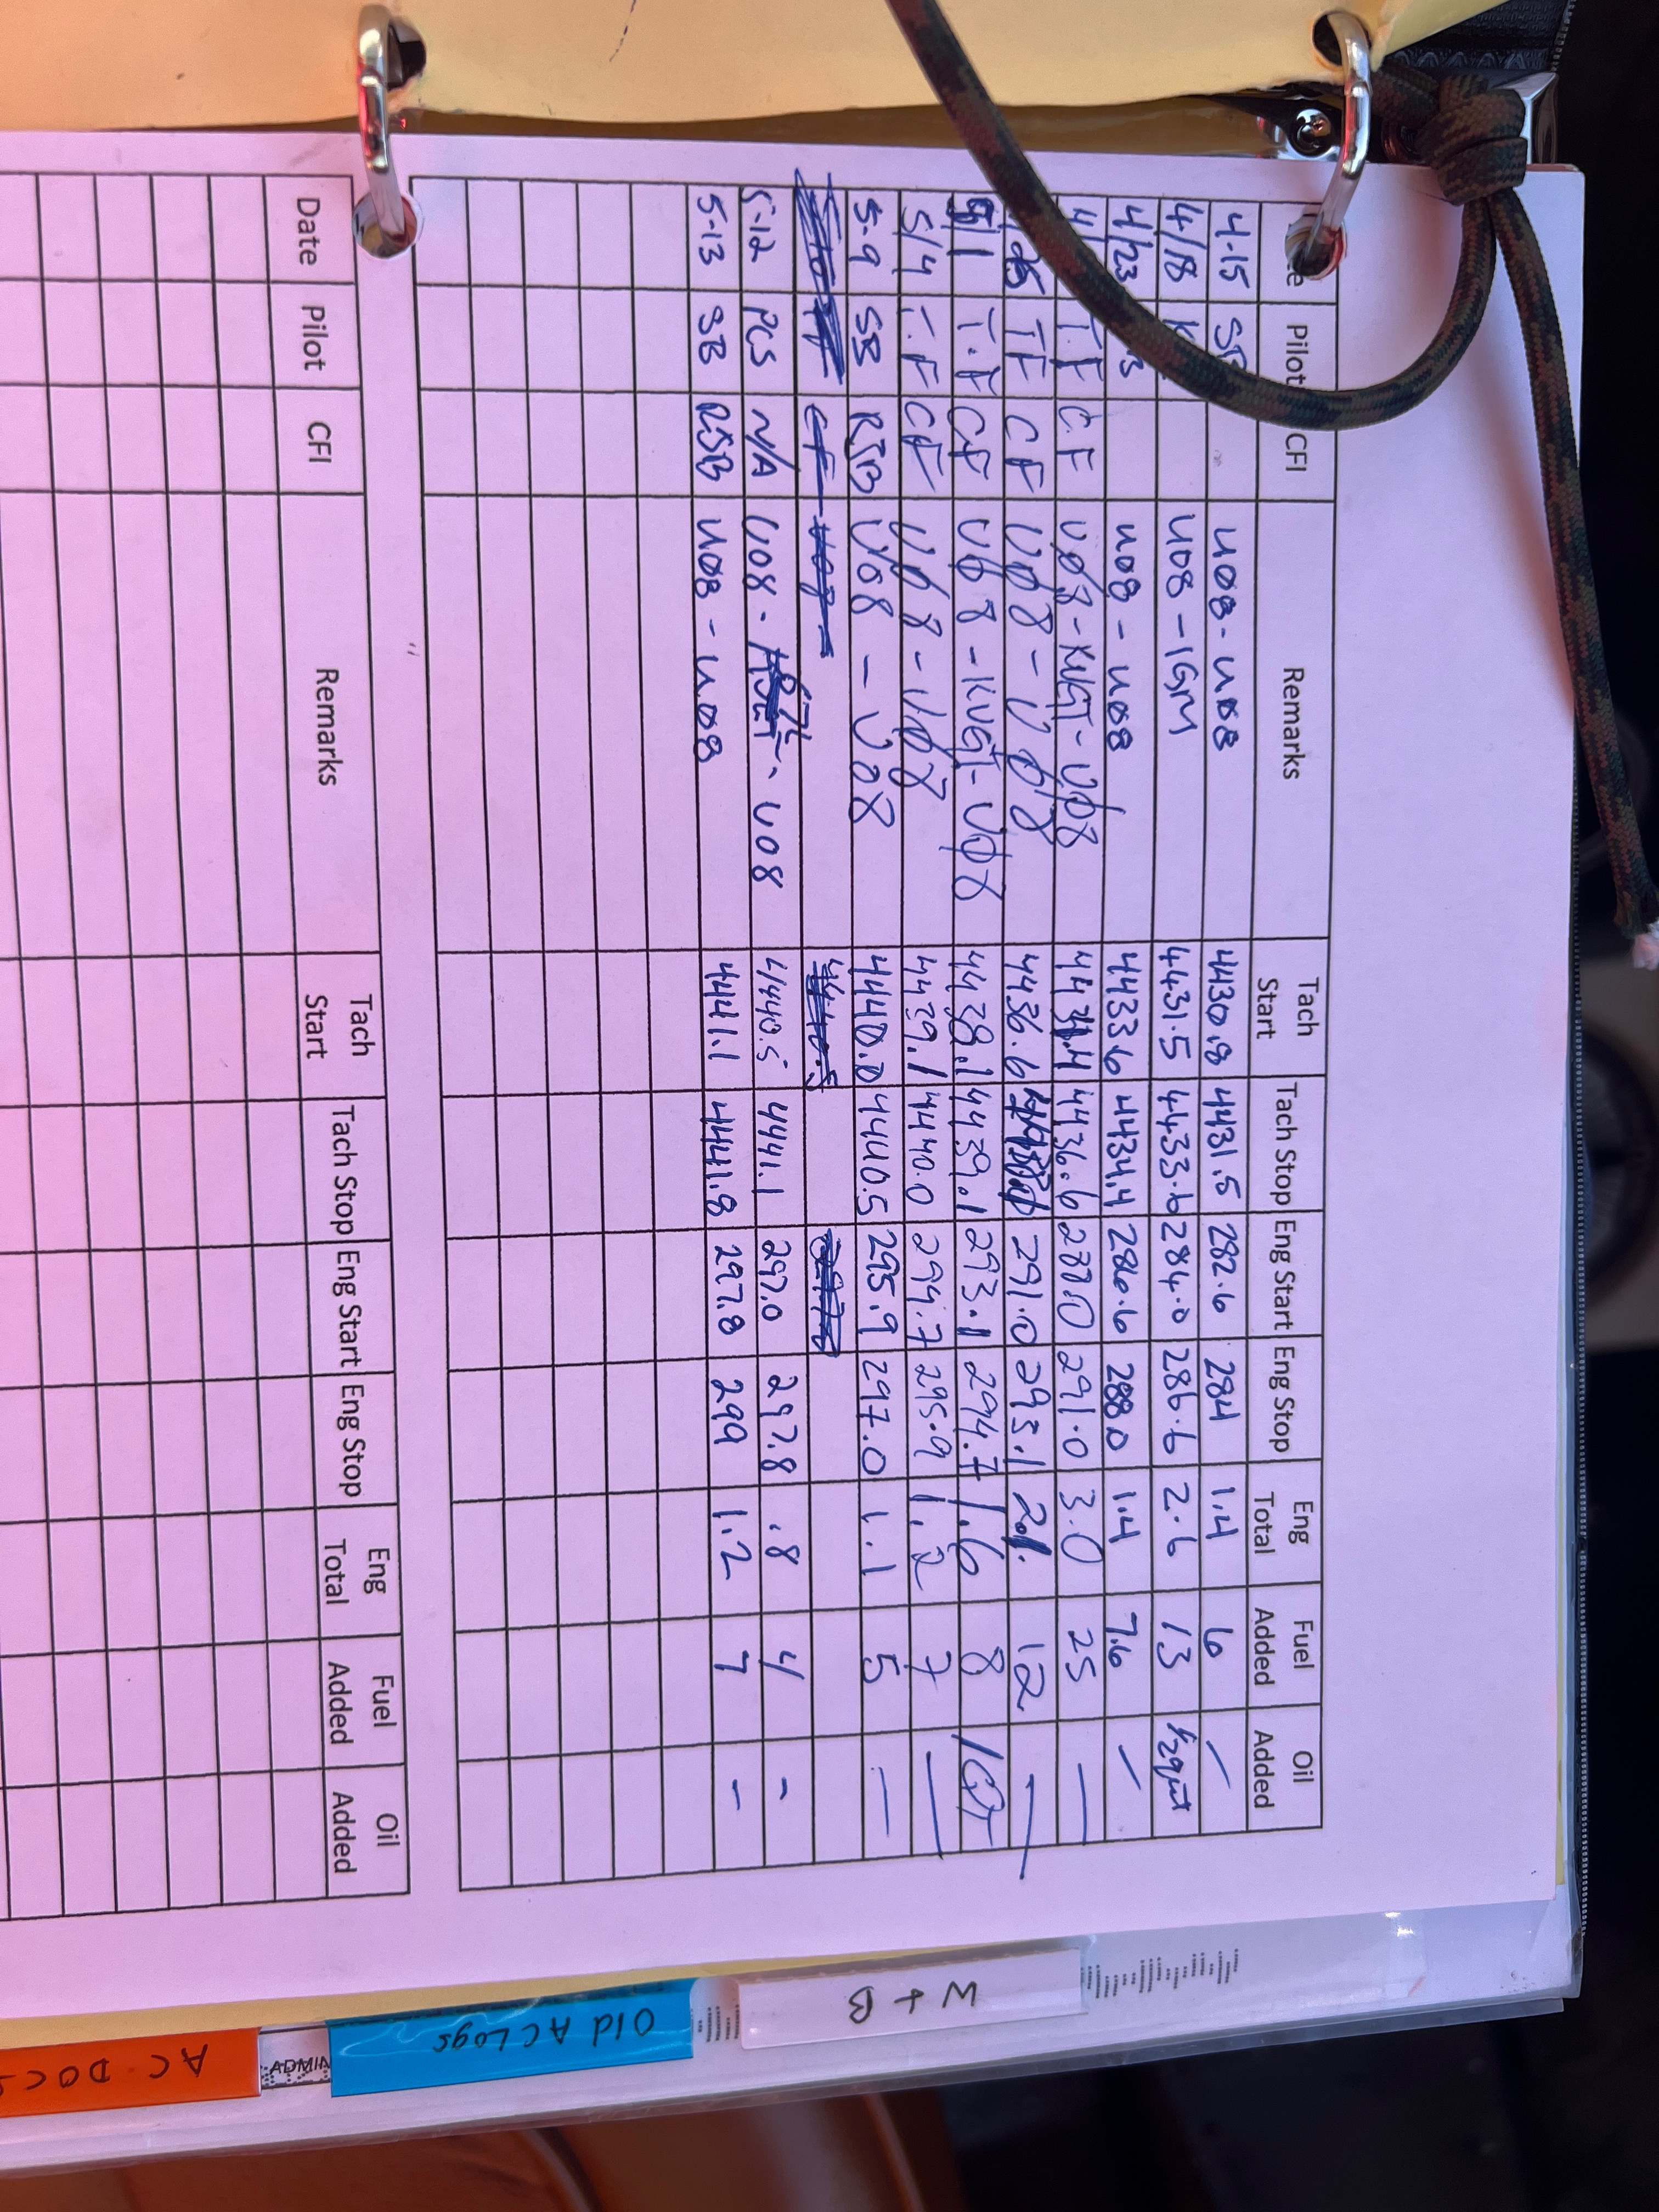 Pilot CFI Remarks Tach Start Tach Stop Eng Start Eng Stop Eng Total Fuel Added Oil Added
4-15 U08-U08 4430.8 4431.5 282.6 284 1.4 6 —
4/18 U08-IGM 4431.5 4433.6 284.0 286.6 2.6 13 1/2 qrt
4/23 U08-U08 4433.6 4434.4 286.6 288.0 1.4 7.6 —
T.F C.F UØ8-KVGT-UØ8 4434.4 4436.6 288.0 291.0 3.0 25 —
TF CF UØ8-UØ8 4436.6 291.0 293.1 2.1 12 —
5/1 T.F CF UØ8-KVGT-UØ8 4438.1 4439.1 293.1 294.7 1.6 8 1QT
5/4 T.F CF UØ8-UØ8 4439.1 4440.0 294.7 295.9 1.2 7 —
5-9 SB RSB U08-U08 4440.0 4440.5 295.9 297.0 1.1 5 —
CF U08- 4440.5
5-12 PCS N/A U08- 67L-U08 4440.5 4441.1 297.0 297.8 .8 4 -
5-13 SB RSB U08-U08 4441.1 4441.8 297.8 299 1.2 7 -
Date Pilot CFI Remarks Tach Start Tach Stop Eng Start Eng Stop Eng Total Fuel Added Oil Added
W + B
Old AC Logs
ADMIN
AC DOC